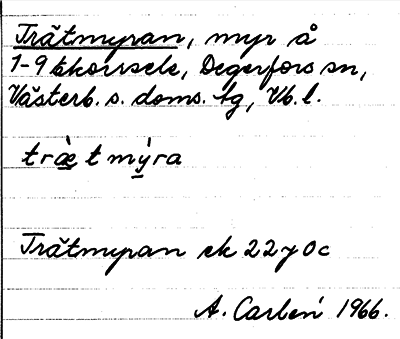 Trätmyran, myr å
1-9 Ekorrsele, Degerfors sn,
Västerb. s. doms. tg, Vb. l.
træ̀t mýra
Trätmyran ek 22 y 0c
A. Carlén 1966.